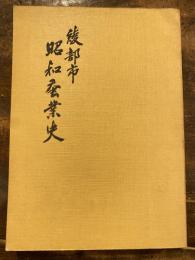 綾部市
昭和蚕業史